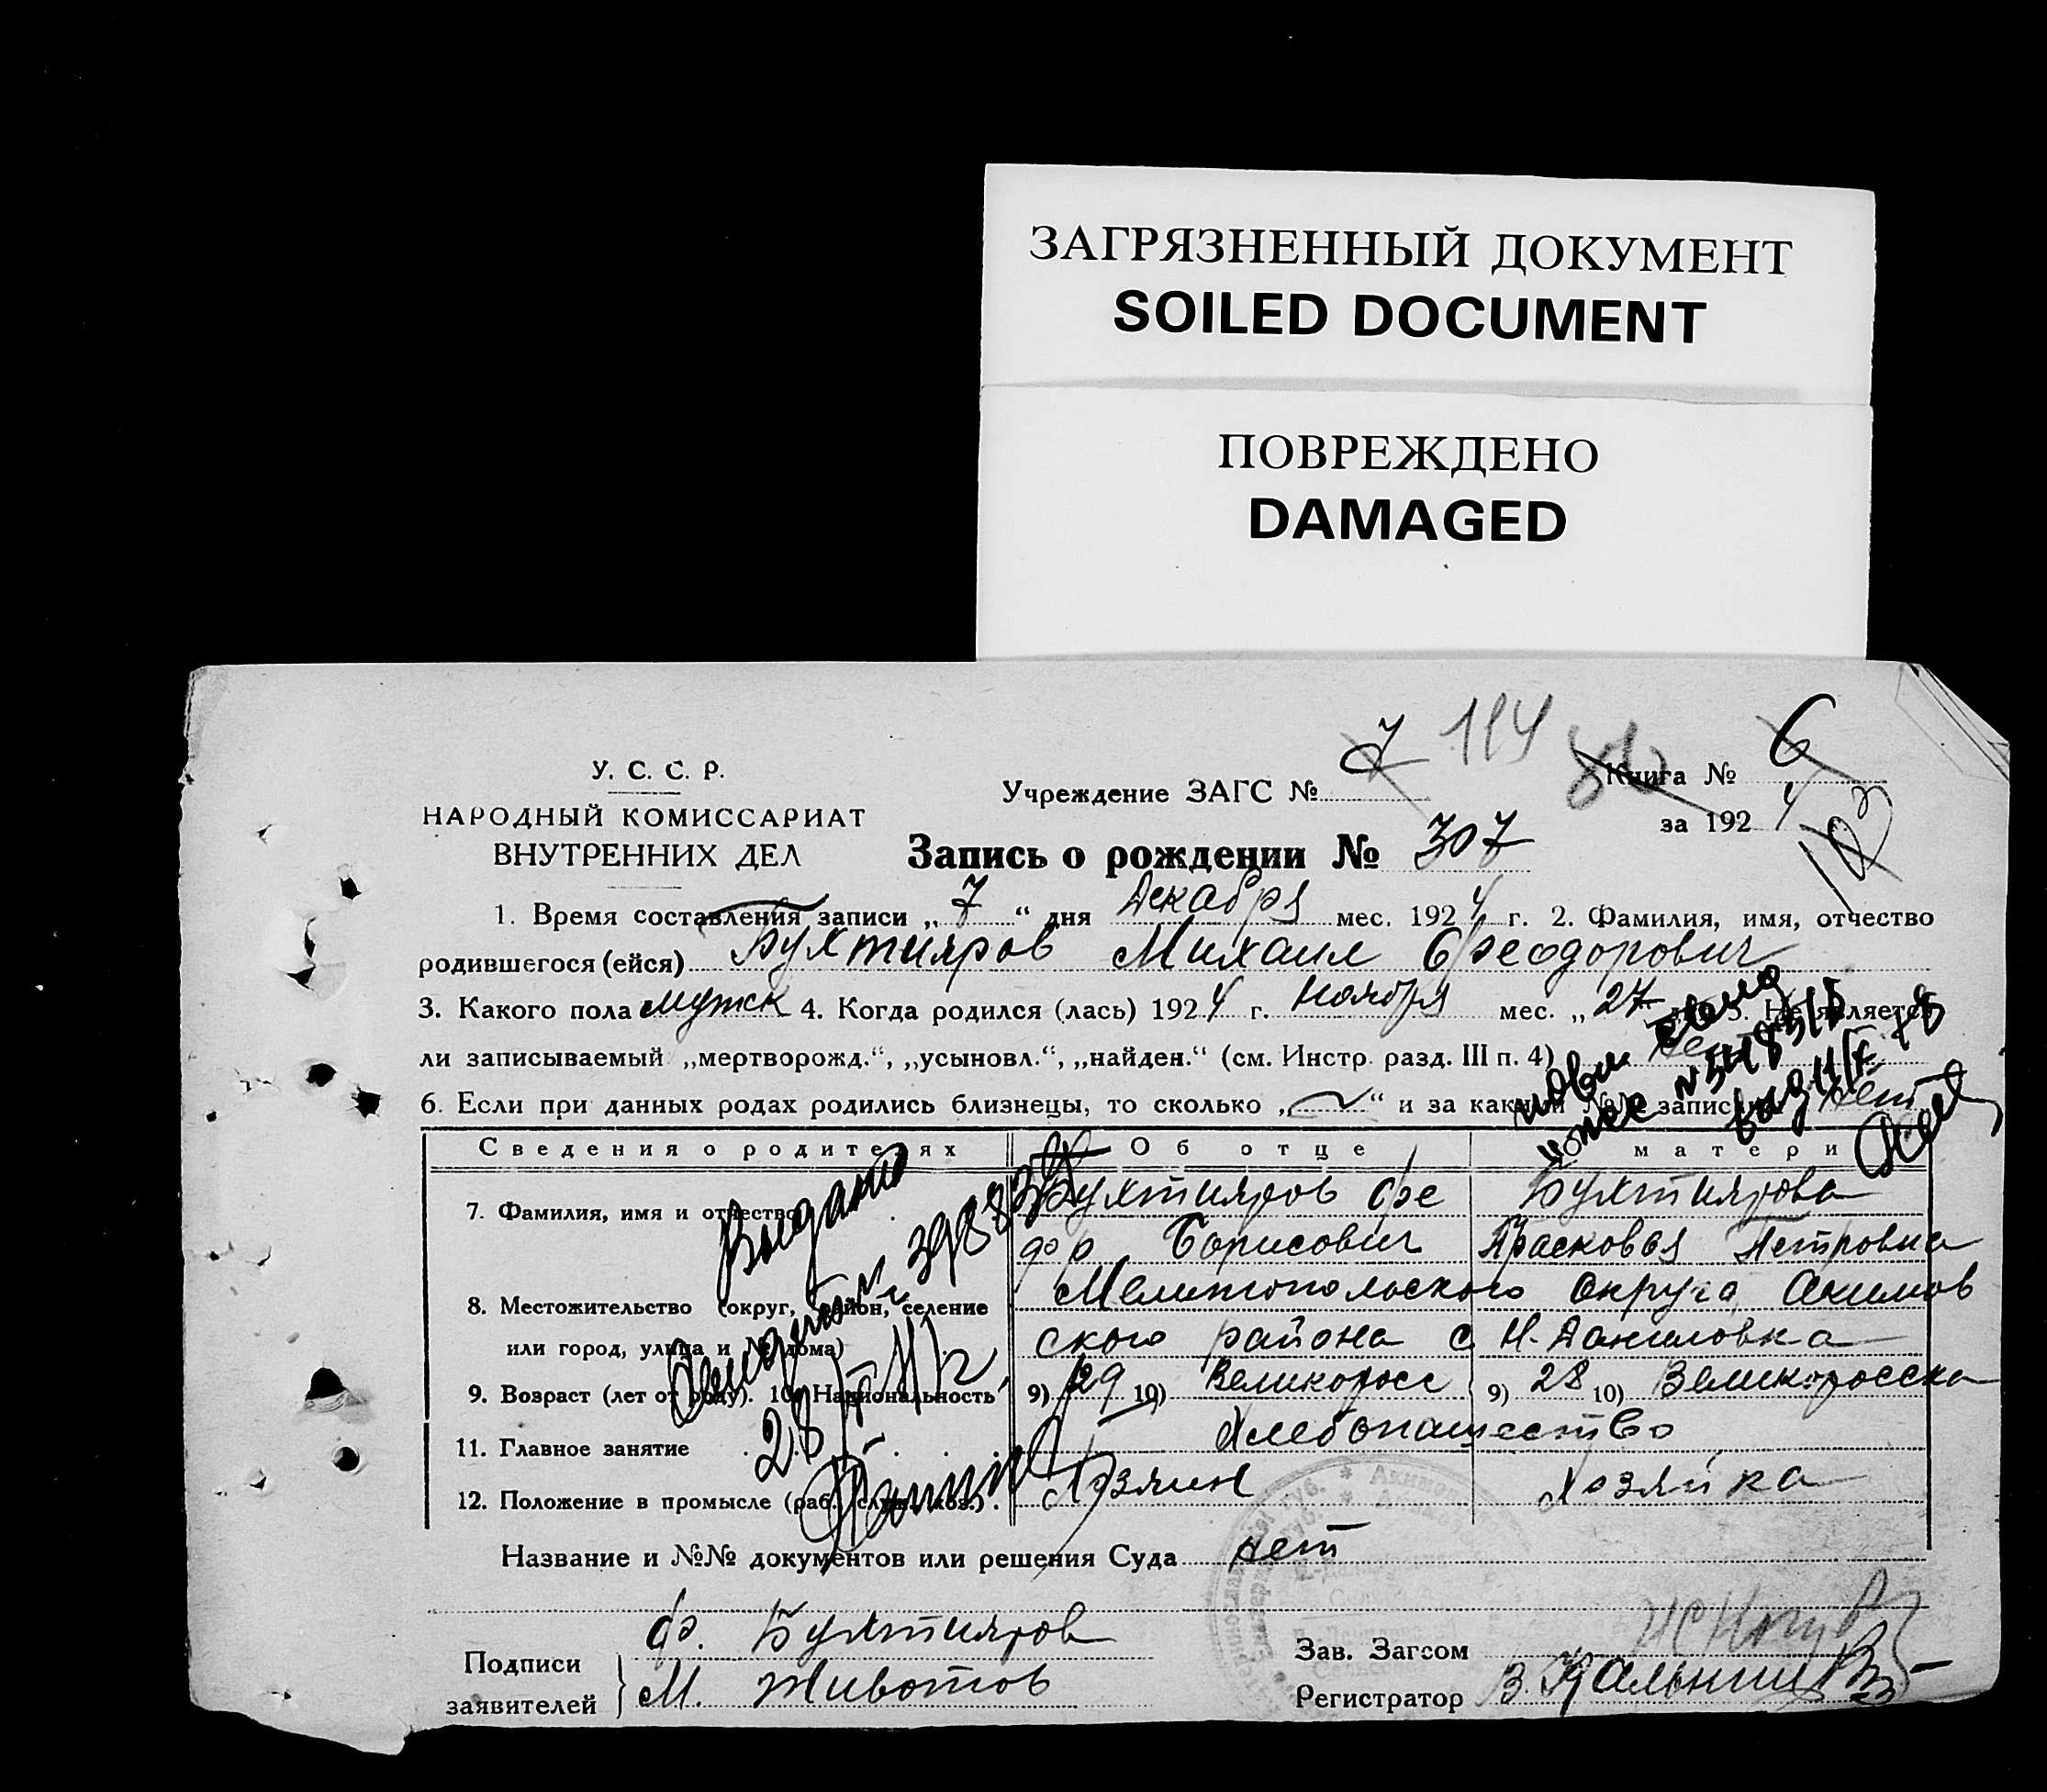 ЗАГРЯЗНЕННЫЙ ДОКУМЕНТ
SOILED DOCUMENT
ПОВРЕЖДЕНО
DAMAGED
У. С. С. Р.
НАРОДНЫЙ КОМИССАРИАТ
ВНУТРЕННИХ ДЕЛ
Учреждение ЗАГС № 7 114
Книга № 6
за 1924
Запись о рождении № 307
1. Время составления записи „7“ дня Декабря мес. 1924 г. 2. Фамилия, имя, отчество
родившегося (ейся) Бухтияров Михаил Феодорович
3. Какого пола мужск 4. Когда родился (лась) 1924 г. Ноября мес. „27 5. Не является
ли записываемый „мертворожд.“, „усыновл.“, „найден.“ (см. Инстр. разд. III п. 4) нет
6. Если при данных родах родились близнецы, то сколько „ “ и за каким №№ запис нет
Сведения о родителях Об отце О матери
7. Фамилия, имя и отчество Бухтияров Фе Бухтиярова
дор Борисович Прасковья Петровна
8. Местожительство (округ, район, селение Мелитопольского округа, Акимов
или город, улица и № дома) ского района с Н-Даниловка
9. Возраст (лет от роду). 10. Национальность 9) 29 10) Великоросс 9) 28 10) Великоросска
11. Главное занятие Хлебопашество
12. Положение в промысле (раб., служ., хоз.). Хозяин Хозяйка
Название и №№ документов или решения Суда нет
Подписи заявителей
Ф. Бухтияров
М. Животов
Зав. Загсом
Регистратор В.
Выдано
28